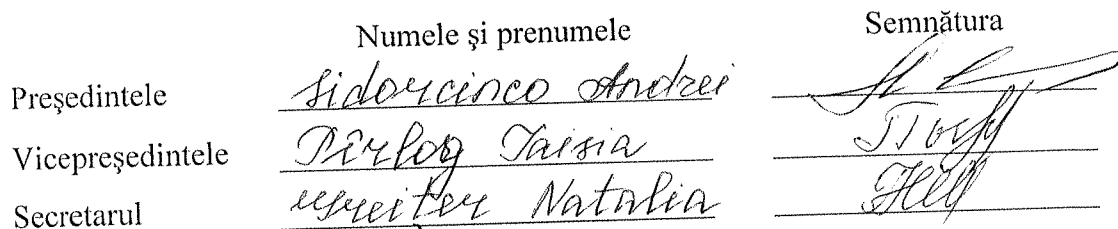 Numele şi prenumele Semnătura
Preşedintele Sidorcinco Andrei
Vicepreşedintele Pîrlog Taisia
Secretarul Natalia